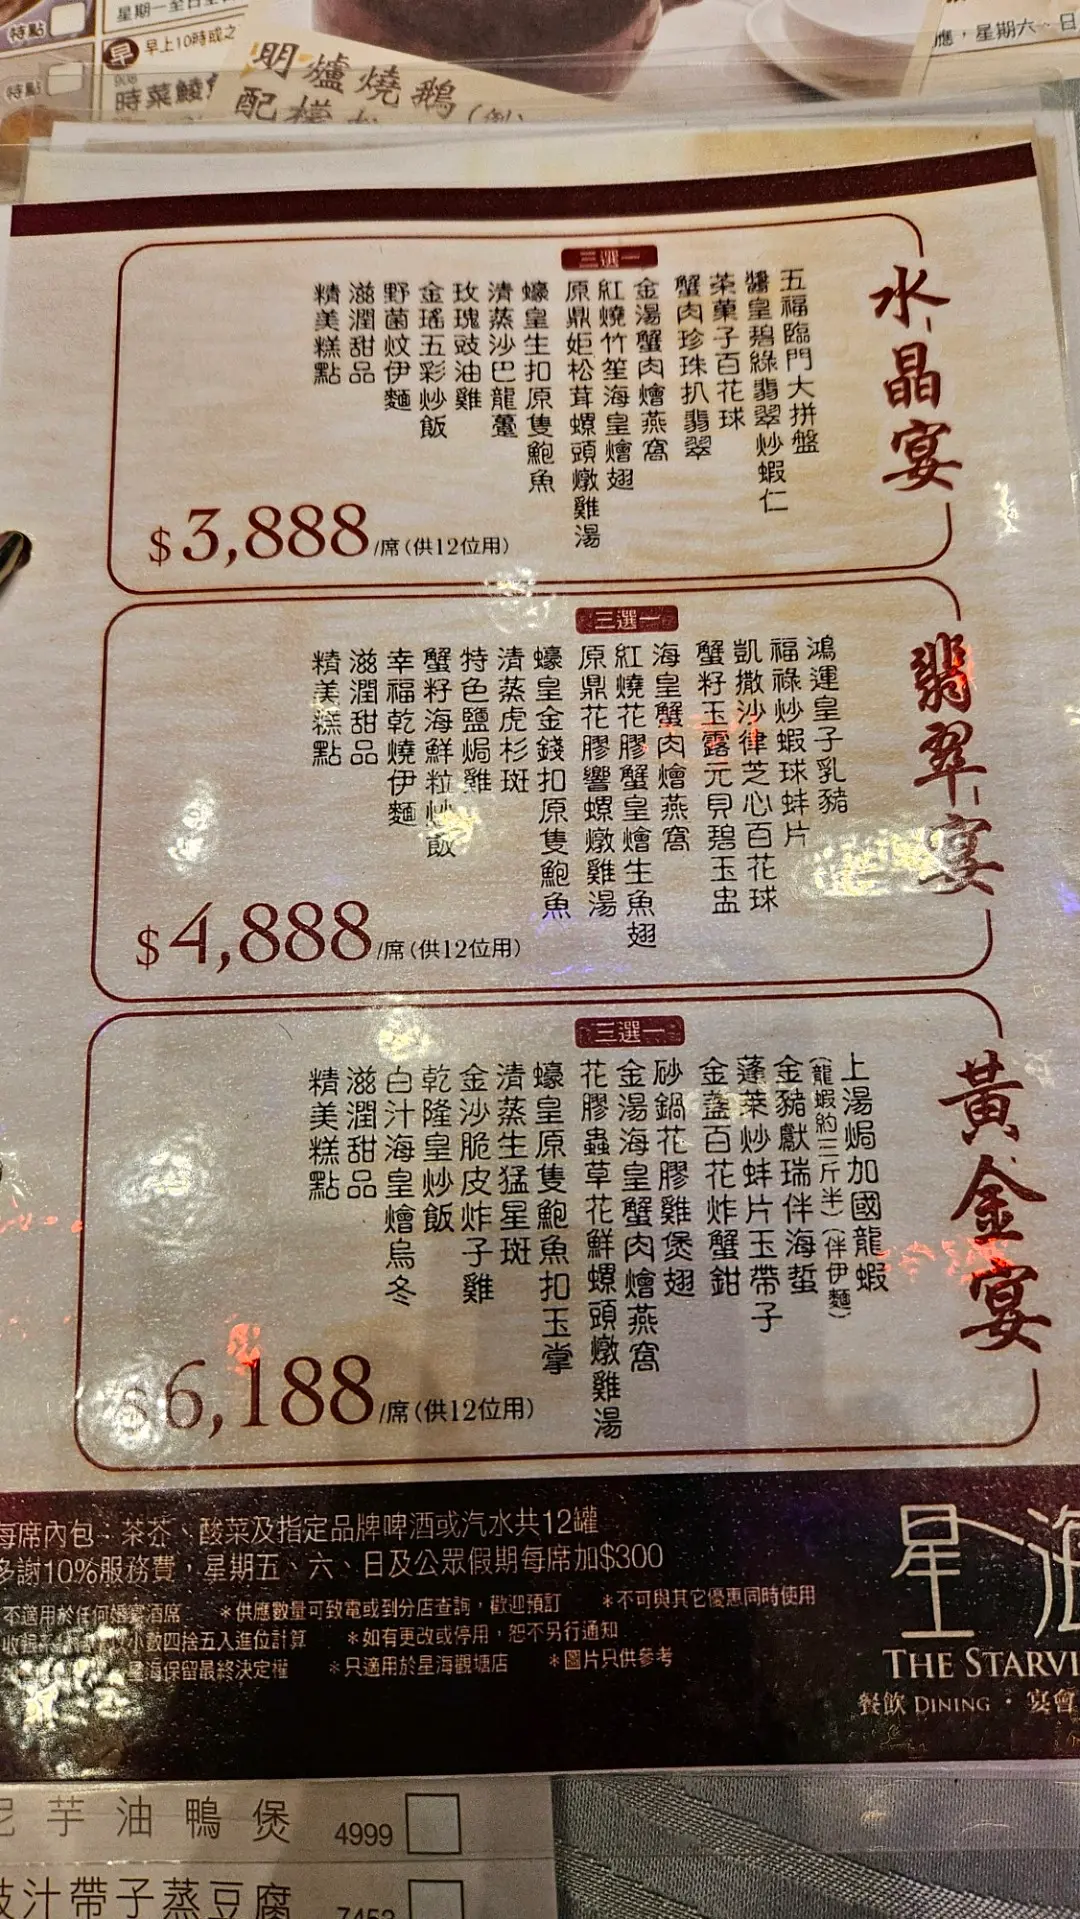 特點
星期一至日
早
早上10時或之
特點
時菜鯪
明爐燒鵝
配
應，星期六、日
水晶宴
五福臨門大拼盤
醬皇碧綠翡翠炒蝦仁
茶菓子百花球
蟹肉珍珠扒翡翠
三選一
金湯蟹肉燴燕窩
紅燒竹笙海皇燴翅
原鼎姬松茸螺頭燉雞湯
蠔皇生扣原隻鮑魚
清蒸沙巴龍躉
玫瑰豉油雞
金瑤五彩炒飯
野菌炆伊麵
滋潤甜品
精美糕點
$3,888/席(供12位用)
翡翠宴
鴻運皇子乳豬
福祿炒蝦球蚌片
凱撒沙律芝心百花球
蟹籽玉露元貝碧玉盅
三選一
海皇蟹肉燴燕窩
紅燒花膠蟹皇燴生魚翅
原鼎花膠響螺燉雞湯
蠔皇金錢扣原隻鮑魚
清蒸虎杉斑
特色鹽焗雞
蟹籽海鮮粒炒飯
幸福乾燒伊麵
滋潤甜品
精美糕點
$4,888/席(供12位用)
黃金宴
上湯焗加國龍蝦
(龍蝦約三斤半)(伴伊麵)
金豬獻瑞伴海蜇
蓬萊炒蚌片玉帶子
金盞百花炸蟹鉗
三選一
砂鍋花膠雞煲翅
金湯海皇蟹肉燴燕窩
花膠蟲草花鮮螺頭燉雞湯
蠔皇原隻鮑魚扣玉掌
清蒸生猛星斑
金沙脆皮炸子雞
乾隆皇炒飯
白汁海皇燴烏冬
滋潤甜品
精美糕點
$6,188/席(供12位用)
每席內包、茶芥、酸菜及指定品牌啤酒或汽水共12罐
多謝10%服務費，星期五、六、日及公眾假期每席加$300
不適用於任何婚宴酒席 *供應數量可致電或到分店查詢，歡迎預訂 *不可與其它優惠同時使用
小數四捨五入進位計算 *如有更改或停用，恕不另行通知
星海保留最終決定權 *只適用於星海觀塘店 *圖片只供參考
星海
THE STARVI
餐飲 DINING · 宴會
芋油鴨煲 4999
汁帶子蒸豆腐